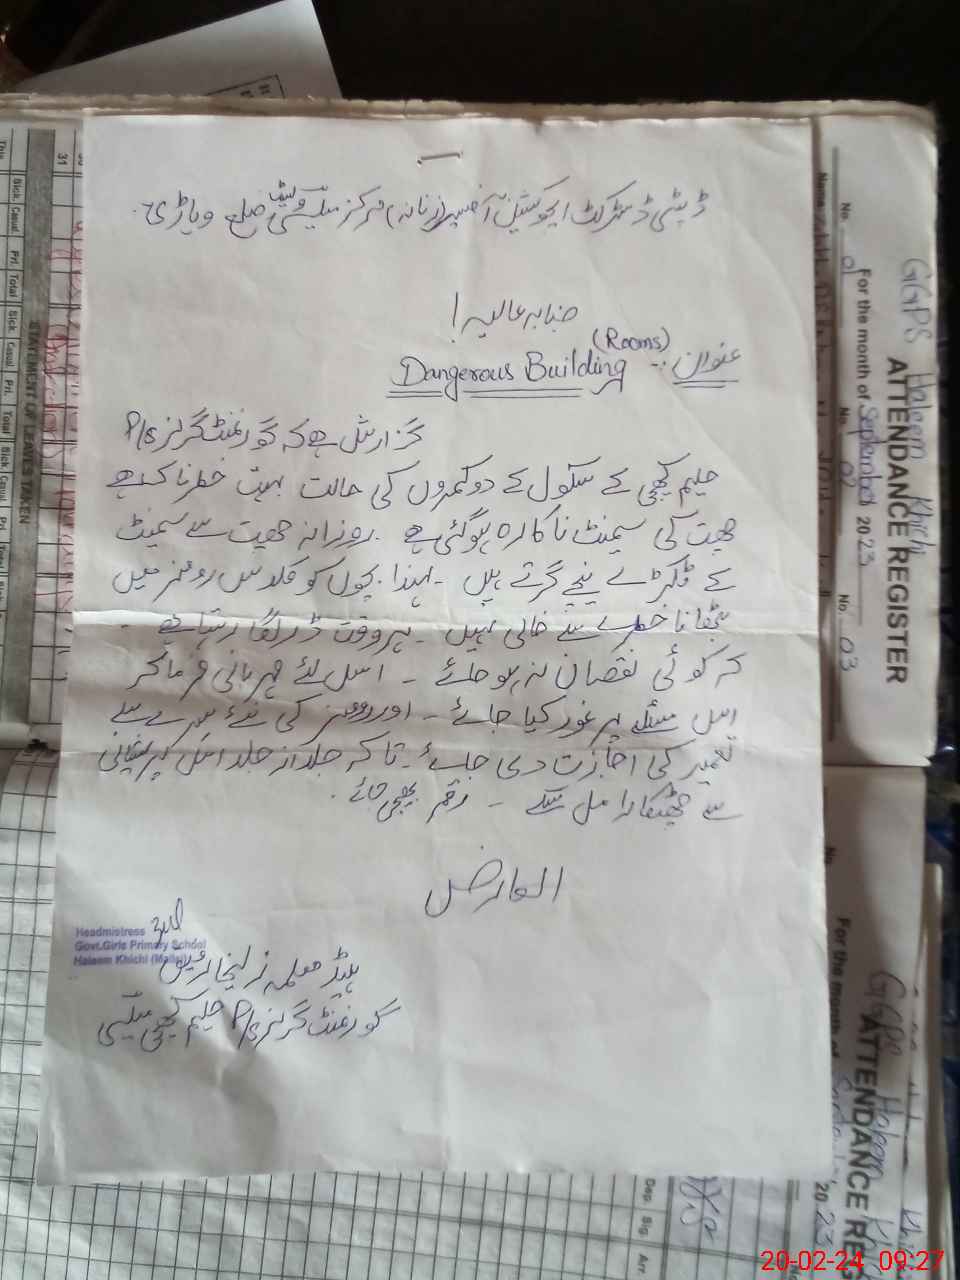 ڈپٹی ڈسٹرکٹ ایجوکیشن آفیسر (زنانہ) مرکز میلسی ضلع وہاڑی۔
جنابہ عالیہ!
عنوان :- Dangerous Building (Rooms)
گزارش ہے کہ گورنمنٹ گرلز P/S
حلیم کھچی کے سکول کے دو کمروں کی حالت بہت خطرناک ہے
چھت کی سیمنٹ ناکارہ ہو گئی ہے ۔ روزانہ چھت سے سیمنٹ
کے ٹکڑے نیچے گرتے ہیں ۔ لہذا بچوں کو کلاس رومز میں
بٹھانا خطرے سے خالی نہیں ۔ ہر وقت ڈر لگا رہتا ہے ۔
کہ کوئی نقصان نہ ہو جائے ۔ اس لئے مہربانی فرما کر
اس مسئلہ پر غور کیا جائے ۔ اور رومز کی نئے سرے سے
تعمیر کی اجازت دی جائے ۔ تاکہ جلد از جلد اس پریشانی
سے چھٹکارا مل سکے ۔ رقم بھیجی جائے ۔
العارض
Headmistress
Govt.Girls Primary School
Haleem Khichi (Mailsi)
ہیڈ معلمہ زلیخا رفیق
گورنمنٹ گرلز P/S حلیم کھچی میلسی
GGPS Haleem Khichi
ATTENDANCE REGISTER
For the month of September 2023
No. 01 No. 02 No. 03
Name
STATEMENT OF LEAVES TAKEN
Sick. Casual Pri. Total Sick. Casual Pri. Total
31
GGPS Haleem Khichi
ATTENDANCE RE
For the month of
2023
Dep. Sig. Arr.
20-02-24 09:27